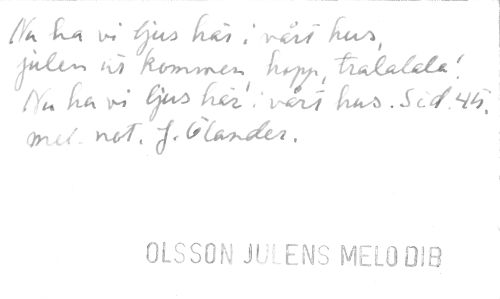 Nu ha vi ljus här i vårt hus,
julen är kommen, hopp, tralalala!
Nu ha vi ljus här i vårt hus. Sid. 45.
mel. not. J. Ölander.
OLSSON JULENS MELODIB